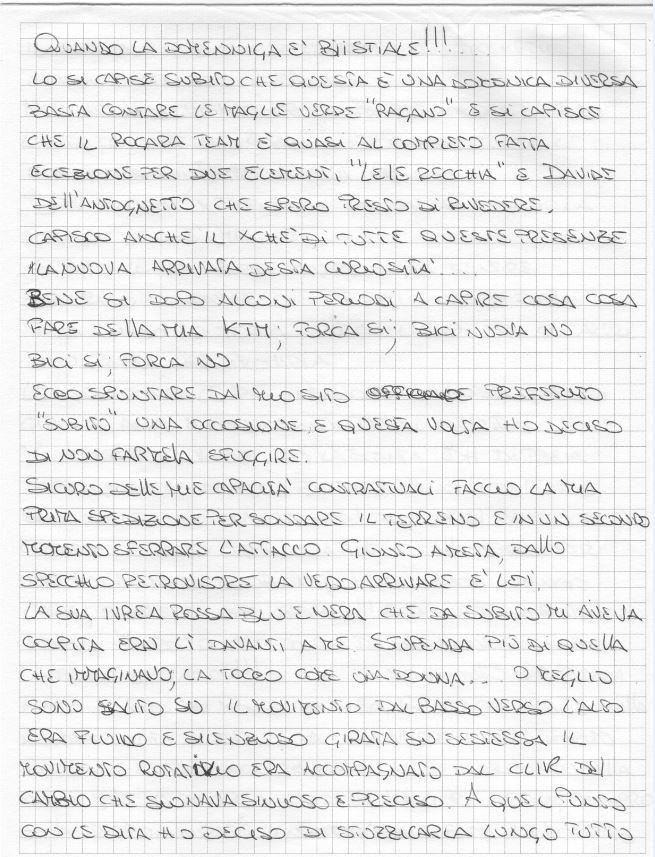 QUANDO LA DOMENNIGA E' BIISTIALE!!!....
LO SI CAPISE SUBITO CHE QUESTA È UNA DOMONICA DIVERSA
BASTA CONTARE LE MAGLIE VERDE "RAGANO" E SI CAPISCE
CHE IL ROGARA TEAM È QUASI AL COMPLETO FATTA
ECCEZIONE PER DUE ELEMENTI, "LELE RECCHIA" E DAVIDE
DELL'ANTOGNETTO CHE SPERO PRESTO DI RIVEDERE.
CAPISCO ANCHE IL XCHE' DI TUTTE QUESTE PRESENZE
LA NUOVA ARRIVATA DESTA CURIOSITA'....
BENE SI DOPO ALCONI PERIODI A CAPIRE COSA COSA
FARE DELLA MIA KTM; FORCA SI; BICI NUOVA NO
BICI SI; FORCA NO
ECCO SPUNTARE DAL MIO SITO PREFERITO
"SUBITO" UNA OCCASIONE E QUESTA VOLTA HO DECISO
DI NON FARMELA SFUGGIRE.
SICURO DELLE MIE CAPACITA' CONTRATTUALI FACCIO LA MIA
PRIMA SPEDIZIONE PER SONDARE IL TERRENO E IN UN SECONDO
MOMENTO SFERRARE L'ATTACCO. GIUNTO A META, DALLO
SPECCHIO RETROVISORE LA VEDO ARRIVARE E' LEI,
LA SUA IVREA ROSSA BLU E NERA CHE DA SUBITO MI AVEVA
COLPITA ERA LÌ DAVANTI A ME. STUPENDA PIÙ DI QUELLA
CHE IMMAGINAVO, LA TOCCO COME UNA DONNA... O MEGLIO
SONO SALITO SU IL MOVIMENTO DAL BASSO VERSO L'ALTO
ERA FLUIDO E SILENZIOSO GIRATA SU SESTESSA IL
MOVIMENTO ROTATIVO ERA ACCOMPAGNATO DAL CLIK DEL
CAMBIO CHE SUONAVA SINUOSO E PRECISO. A QUEL PUNTO
CON LE DITA HO DECISO DI STUZZICARLA LUNGO TUTTO